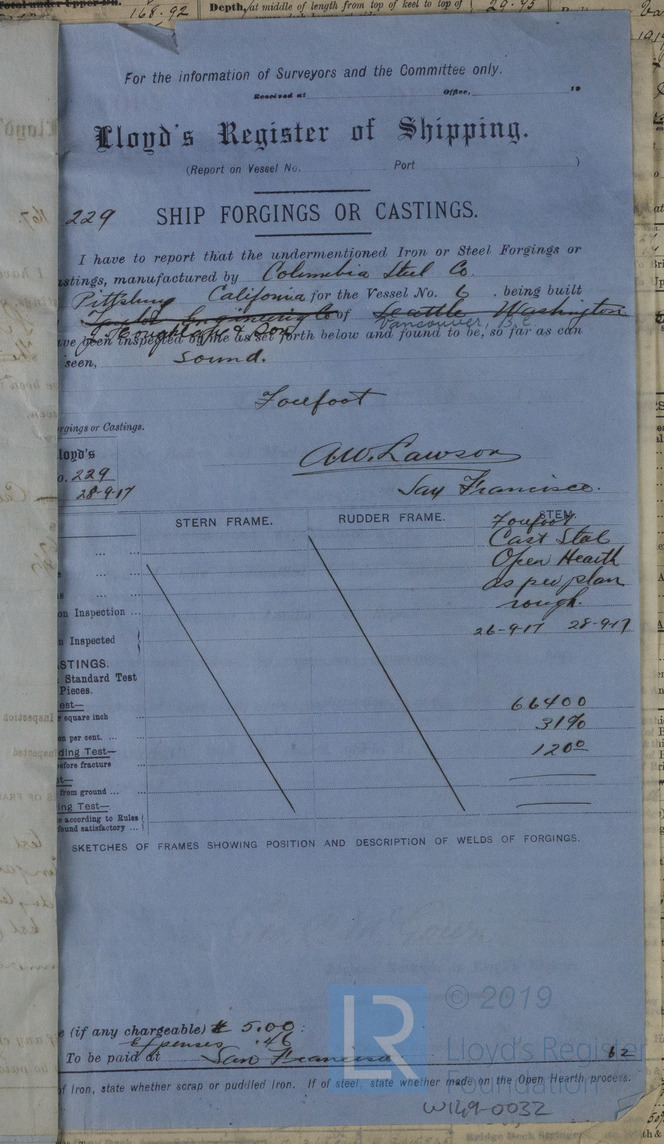 Total under Upper Dk. 168.92 Depth, at middle of length from top of keel to top of 20.45
For the information of Surveyors and the Committee only.
Received at Office, 19
Lloyd's Register of Shipping.
(Report on Vessel No. Port )
229 SHIP FORGINGS OR CASTINGS.
I have to report that the undermentioned Iron or Steel Forgings or
astings, manufactured by Columbia Steel Co.
Pittsburg California for the Vessel No. 6, being built
of Seattle Washington
J. Coughlan & Son Vancouver, B.C.
ave been inspected by me as set forth below and found to be, so far as can
seen, Sound.
Forefoot
rgings or Castings.
loyd's
o. 229
28-9-17
A.W. Lawson
San Francisco.
STERN FRAME. RUDDER FRAME. STEM.
Forefoot
Cast Steel
Open Hearth
as per plan
rough.
on Inspection ...
26-9-17 28-9-17
n Inspected
STINGS.
Standard Test
Pieces.
est—
66400
square inch ...
31%
on per cent. ...
ding Test—
120°
before fracture ...
t—
from ground ...
ing Test—
e according to Rules
found satisfactory ...
SKETCHES OF FRAMES SHOWING POSITION AND DESCRIPTION OF WELDS OF FORGINGS.
e (if any chargeable) $ 5.00:
Expenses .46
To be paid at San Francisco
62
of Iron, state whether scrap or puddled Iron. If of steel, state whether made on the Open Hearth process.
LR
© 2019
Lloyd's Register
Foundation
W149-0032